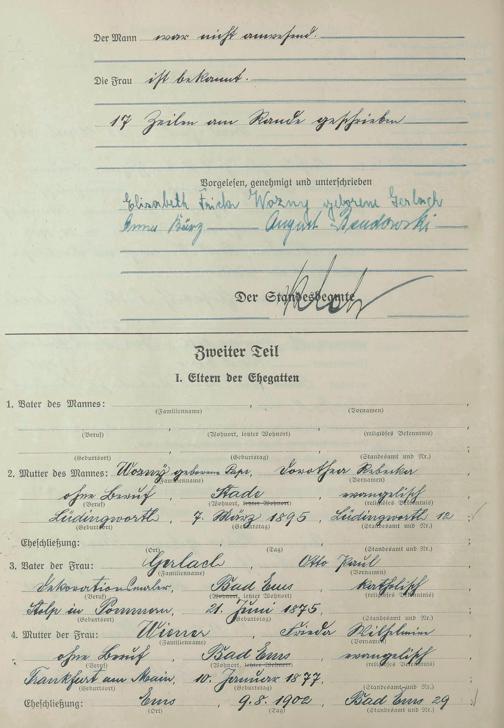 Der Mann war nicht anwesend.
Die Frau ist bekannt.
17 Zeilen am Rande geschrieben
Vorgelesen, genehmigt und unterschrieben
Elisabeth Frieda Wozny geborene Gerlach
Anna Kürz August
Der Standesbeamte
Zweiter Teil
I. Eltern der Ehegatten
1. Vater des Mannes: , ,
(Familienname) (Vornamen)
(Beruf) (Wohnort, letzter Wohnort) (religiöses Bekenntnis)
(Geburtsort) (Geburtstag) (Standesamt und Nr.)
2. Mutter des Mannes: Wozny geborene Pape, Dorothea Rebecka
(Familienname) (Vornamen)
ohne Beruf, Stade, evangelisch
(Beruf) (Wohnort, letzter Wohnort) (religiöses Bekenntnis)
Lüdingworth, 7. März 1895, Lüdingworth 12
(Geburtsort) (Geburtstag) (Standesamt und Nr.)
Eheschließung:
(Ort) (Tag) (Standesamt und Nr.)
3. Vater der Frau: Gerlach, Otto Paul
(Familienname) (Vornamen)
Dekorationsmaler, Bad Ems, katholisch
(Beruf) (Wohnort, letzter Wohnort) (religiöses Bekenntnis)
Stolp in Pommern, 21. Juni 1875,
(Geburtsort) (Geburtstag) (Standesamt und Nr.)
4. Mutter der Frau: , Frieda Wilhelmine
(Familienname) (Vornamen)
ohne Beruf, Bad Ems, evangelisch
(Beruf) (Wohnort, letzter Wohnort) (religiöses Bekenntnis)
Frankfurt am Main, 10. Januar 1877,
(Geburtsort) (Geburtstag) (Standesamt und Nr.)
Eheschließung: Ems, 9.8.1902, Bad Ems 29
(Ort) (Tag) (Standesamt und Nr.)